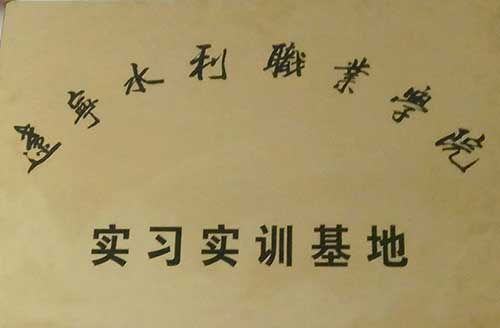 遼寧水利職業學院
实习实训基地